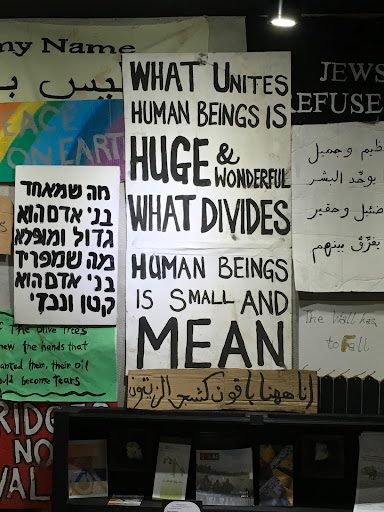 my Name
ليس
PEACE
ON EARTH
WHAT UNITES
HUMAN BEINGS IS
HUGE &
WONDERFUL
WHAT DIVIDES
HUMAN BEINGS
IS SMALL AND
MEAN
JEWS
REFUSE
מה שמאחד
בני אדם הוא
גדול ומופלא
מה שמפריד
בני אדם הוא
קטן ונבזי
ظيم وجميل
يوحّد البشر
ضئيل وحقير
يفرّق بينهم
The Wall has
to Fall
f the olive Trees
new the hands that
anted them, their oil
ould become Tears
انا ههنا باقون كشجر الزيتون
RIDGES
NO
WAL